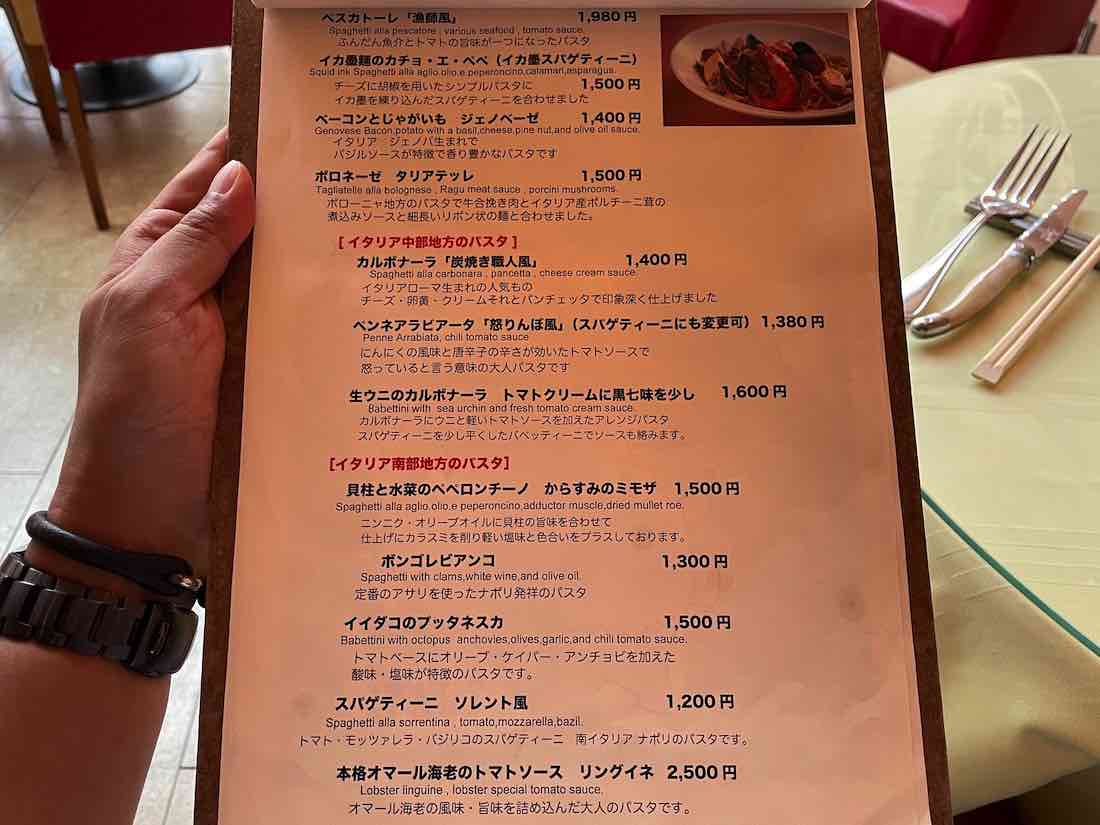 ペスカトーレ「漁師風」 1,980円
Spaghetti alla pescatore , various seafood , tomato sauce.
ふんだん魚介とトマトの旨味が一つになったパスタ
イカ墨麺のカチョ・エ・ペペ（イカ墨スパゲティーニ）
Squid ink Spaghetti alla aglio.olio.e.peperoncino,calamari,asparagus.
チーズに胡椒を用いたシンプルパスタに 1,500円
イカ墨を練り込んだスパゲティーニを合わせました
ベーコンとじゃがいも ジェノベーゼ 1,400円
Genovese Bacon,potato with a basil,cheese,pine nut,and olive oil sauce.
イタリア ジェノバ生まれで
バジルソースが特徴で香り豊かなパスタです
ボロネーゼ タリアテッレ 1,500円
Tagliatelle alla bolognese , Ragu meat sauce , porcini mushrooms.
ボローニャ地方のパスタで牛合挽き肉とイタリア産ポルチーニ茸の
煮込みソースと細長いリボン状の麺と合わせました。
[ イタリア中部地方のパスタ ]
カルボナーラ「炭焼き職人風」 1,400円
Spaghetti alla carbonara , pancetta , cheese cream sauce.
イタリアローマ生まれの人気もの
チーズ・卵黄・クリームそれとパンチェッタで印象深く仕上げました
ペンネアラビアータ「怒りんぼ風」（スパゲティーニにも変更可） 1,380円
Penne Arrabiata, chili tomato sauce
にんにくの風味と唐辛子の辛さが効いたトマトソースで
怒っていると言う意味の大人パスタです
生ウニのカルボナーラ トマトクリームに黒七味を少し 1,600円
Babettini with sea urchin and fresh tomato cream sauce.
カルボナーラにウニと軽いトマトソースを加えたアレンジパスタ
スパゲティーニを少し平くしたバベッティーニでソースも絡みます。
[イタリア南部地方のパスタ]
貝柱と水菜のペペロンチーノ からすみのミモザ 1,500円
Spaghetti alla aglio.olio.e peperoncino,adductor muscle,dried mullet roe.
ニンニク・オリーブオイルに貝柱の旨味を合わせて
仕上げにカラスミを削り軽い塩味と色合いをプラスしております。
ボンゴレビアンコ 1,300円
Spaghetti with clams,white wine,and olive oil.
定番のアサリを使ったナポリ発祥のパスタ
イイダコのプッタネスカ 1,500円
Babettini with octopus anchovies,olives,garlic,and chili tomato sauce.
トマトベースにオリーブ・ケイパー・アンチョビを加えた
酸味・塩味が特徴のパスタです。
スパゲティーニ ソレント風 1,200円
Spaghetti alla sorrentina , tomato,mozzarella,bazil.
トマト・モッツァレラ・バジリコのスパゲティーニ 南イタリア ナポリのパスタです。
本格オマール海老のトマトソース リングイネ 2,500円
Lobster linguine , lobster special tomato sauce.
オマール海老の風味・旨味を詰め込んだ大人のパスタです。